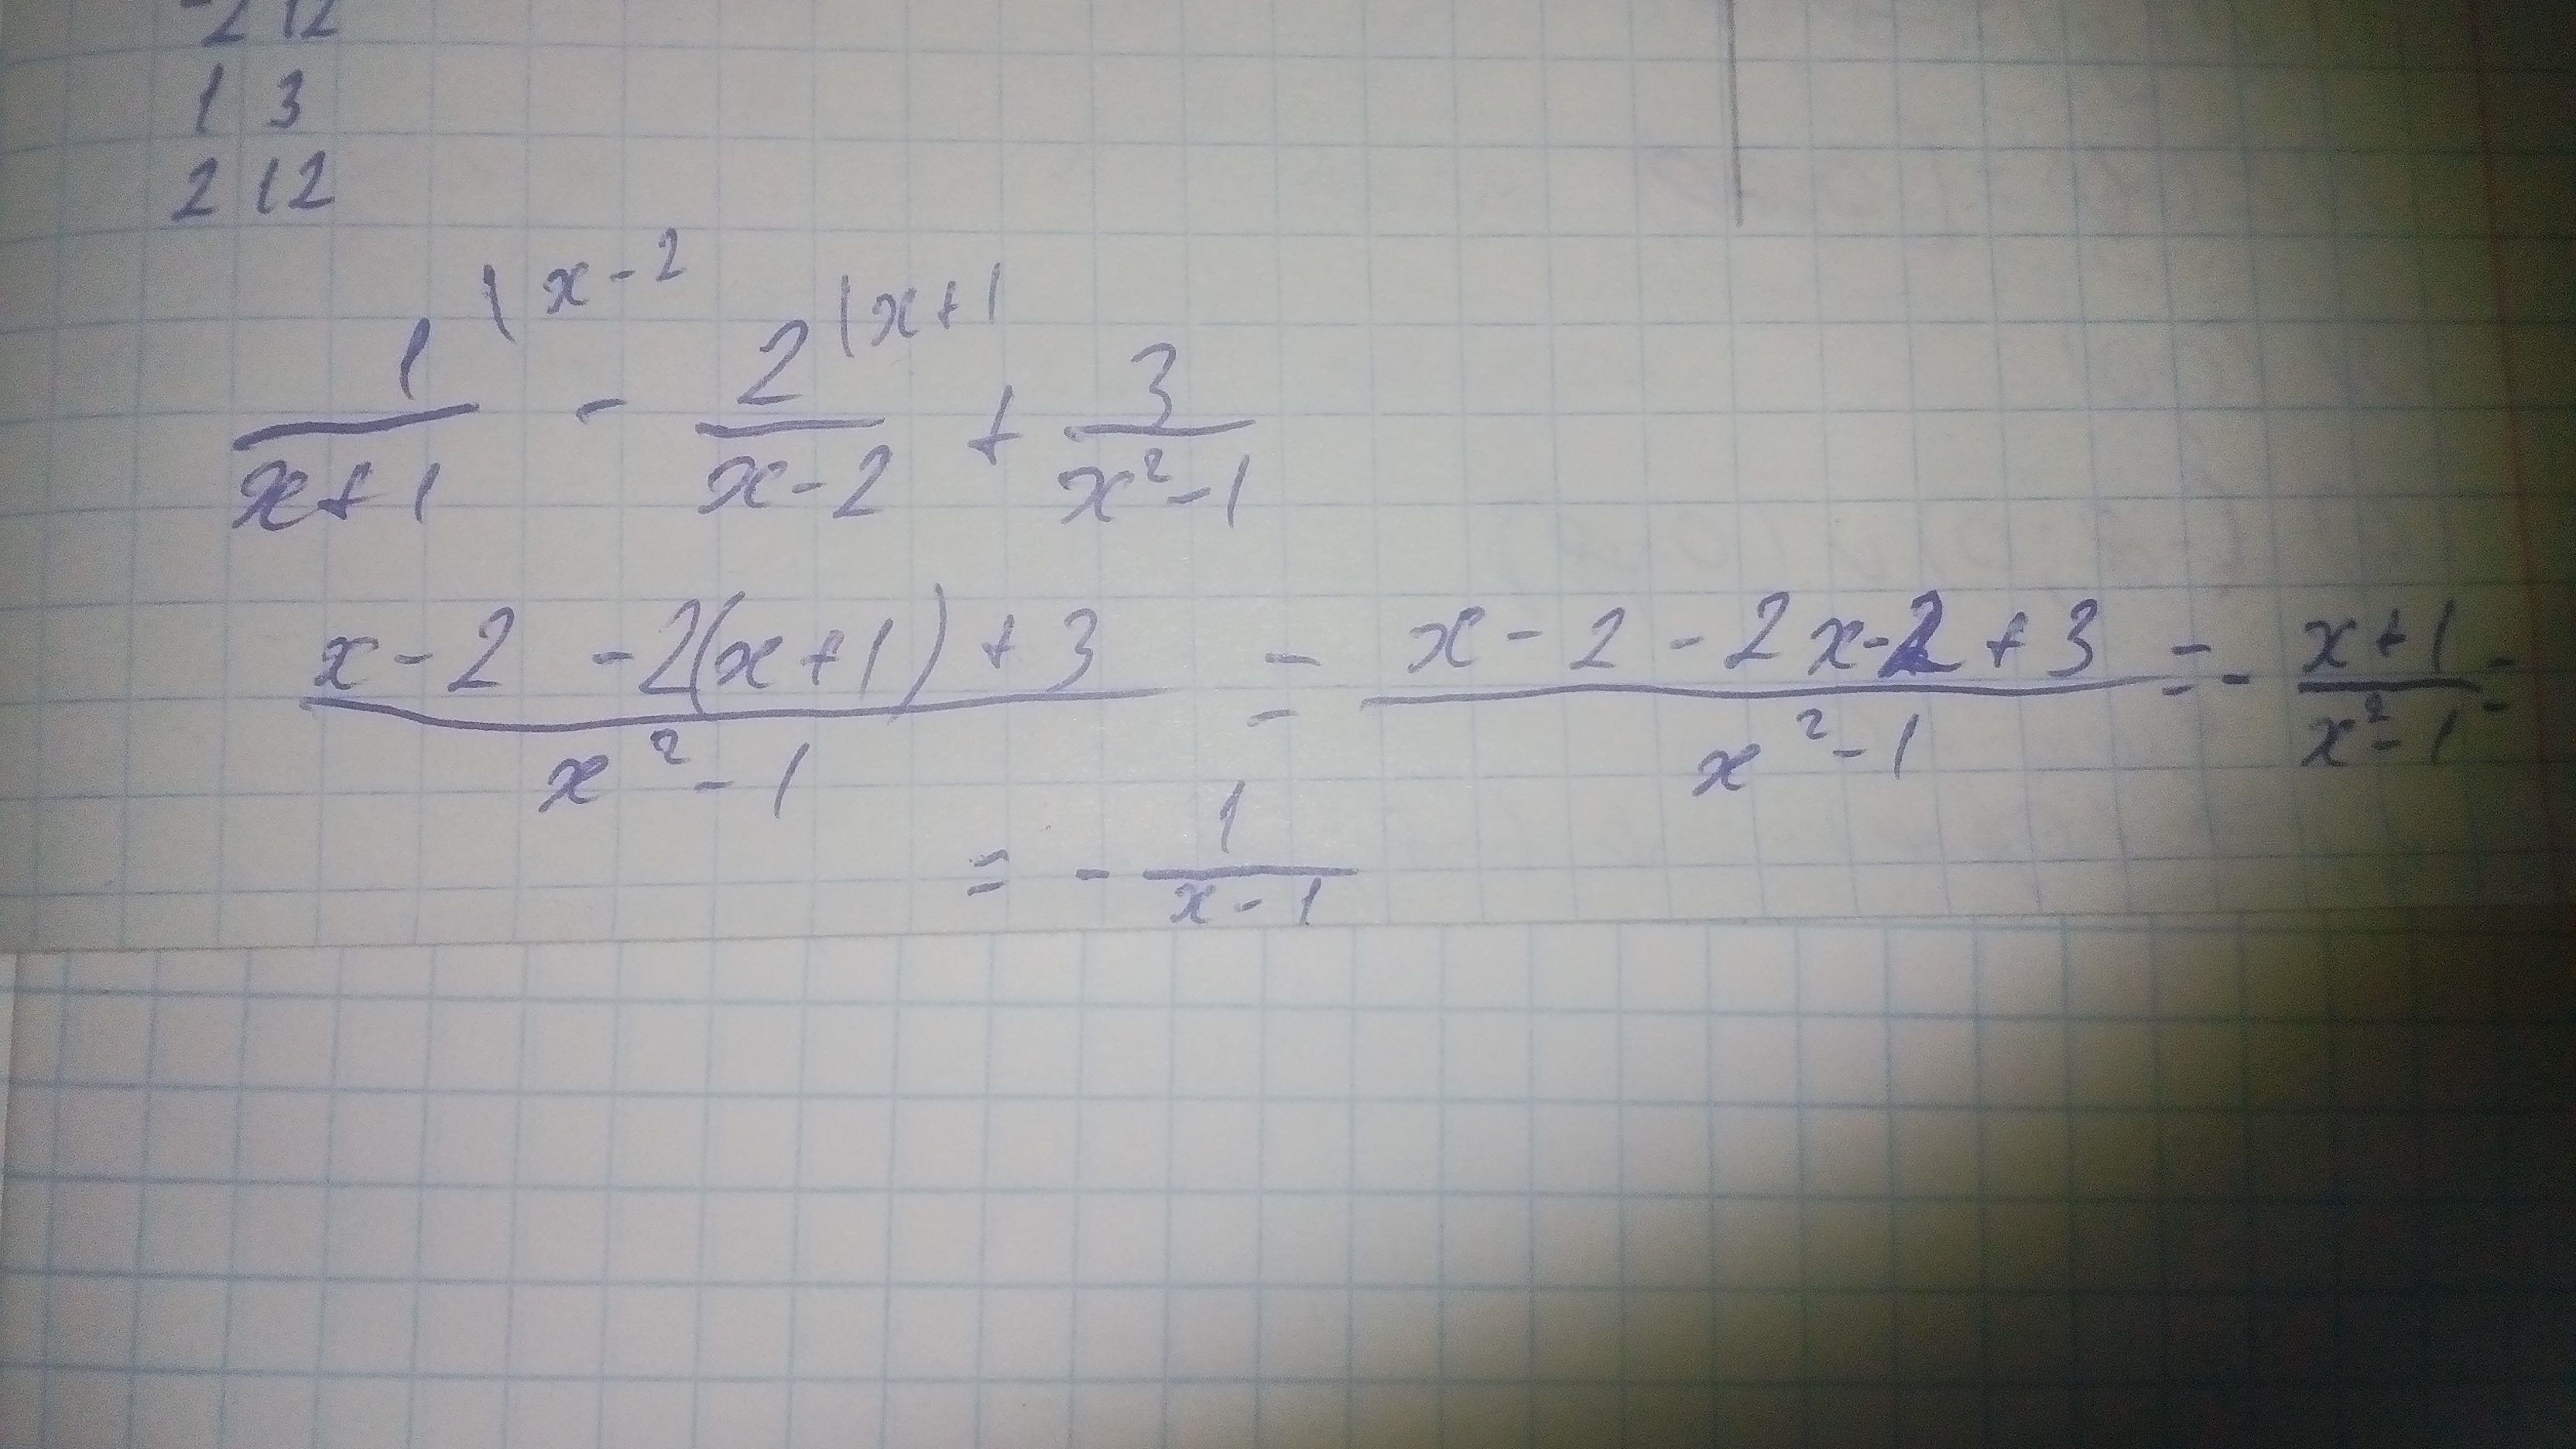 -2 12
1 3
2 12
1/(x+1) |x-2 - 2/(x-2) |x+1 + 3/(x²-1)
(x-2 -2(x+1)+3)/(x²-1) = (x-2-2x-2+3)/(x²-1) = - (x+1)/(x²-1) =
= - 1/(x-1)